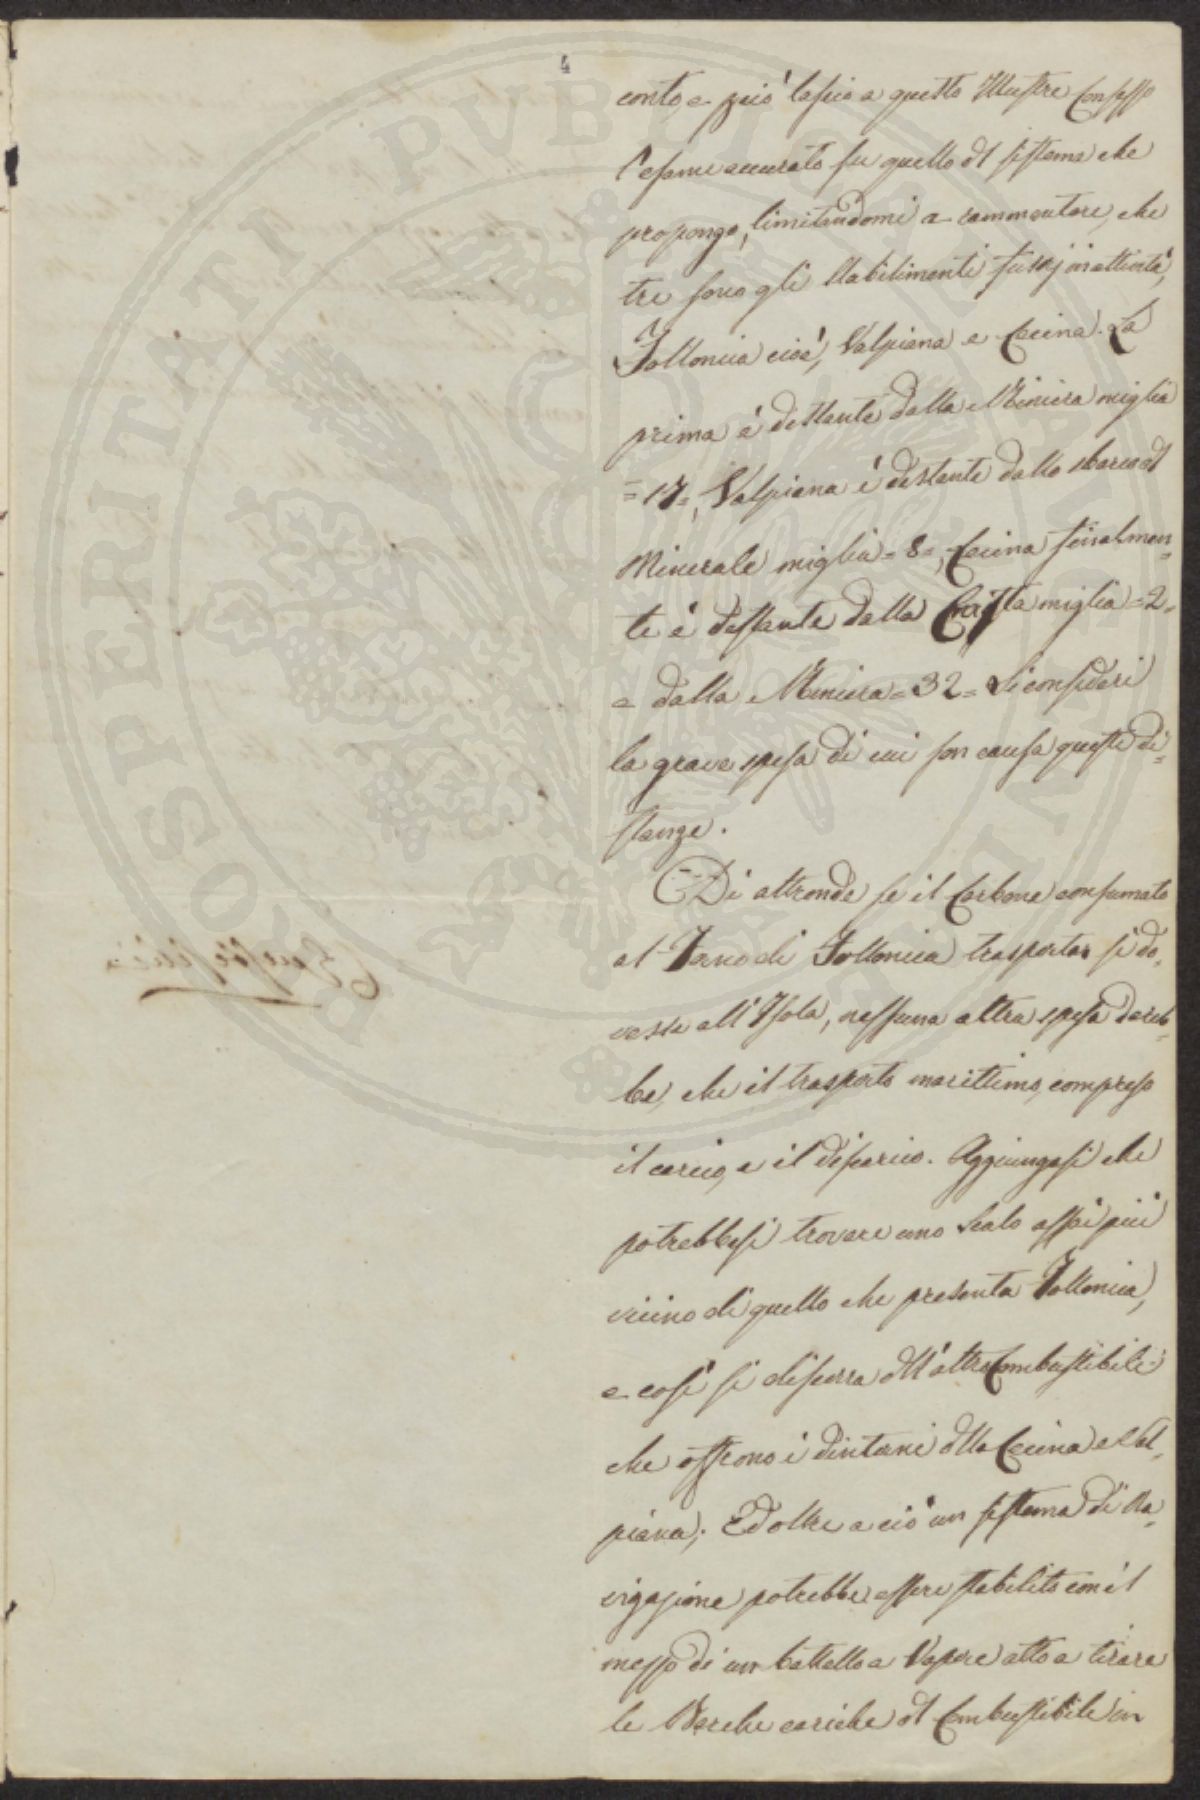 4
conto, e perciò lascio a questo Illustre Consesso
l'esame accurato su quello del sistema che
propongo, limitandomi a rammentare, che
tre sono gli stabilimenti fusorj in attività,
Follonica cioè, Valpiana e Cecina. La
prima è distante dalla Miniera miglia
=17=, Valpiana è distante dallo sbarco del
Minerale miglia =8=, Cecina finalmen=
te è distante dalla Costa miglia =2=
e dalla Miniera =32= Si consideri
la grave spesa di cui son causa queste di=
stanze.
Di altronde se il Carbone consumato
al Forno di Follonica trasportar si do=
vesse all'Isola, nessuna altra spesa dareb=
be, che il trasporto marittimo, compreso
il carico, e il discarico. Aggiungasi che
potrebbesi trovare uno Scalo assai più
vicino di quello che presenta Follonica,
e così si discorra dell'altro Combustibile
che offrono i dintorni della Cecina e Val=
piana; Ed oltre a ciò un sistema di Na=
vigazione potrebbe essere stabilito con il
mezzo di un battello a Vapore atto a tirare
le Barche cariche del Combustibile in
PROSPERITATI PUBLICAE